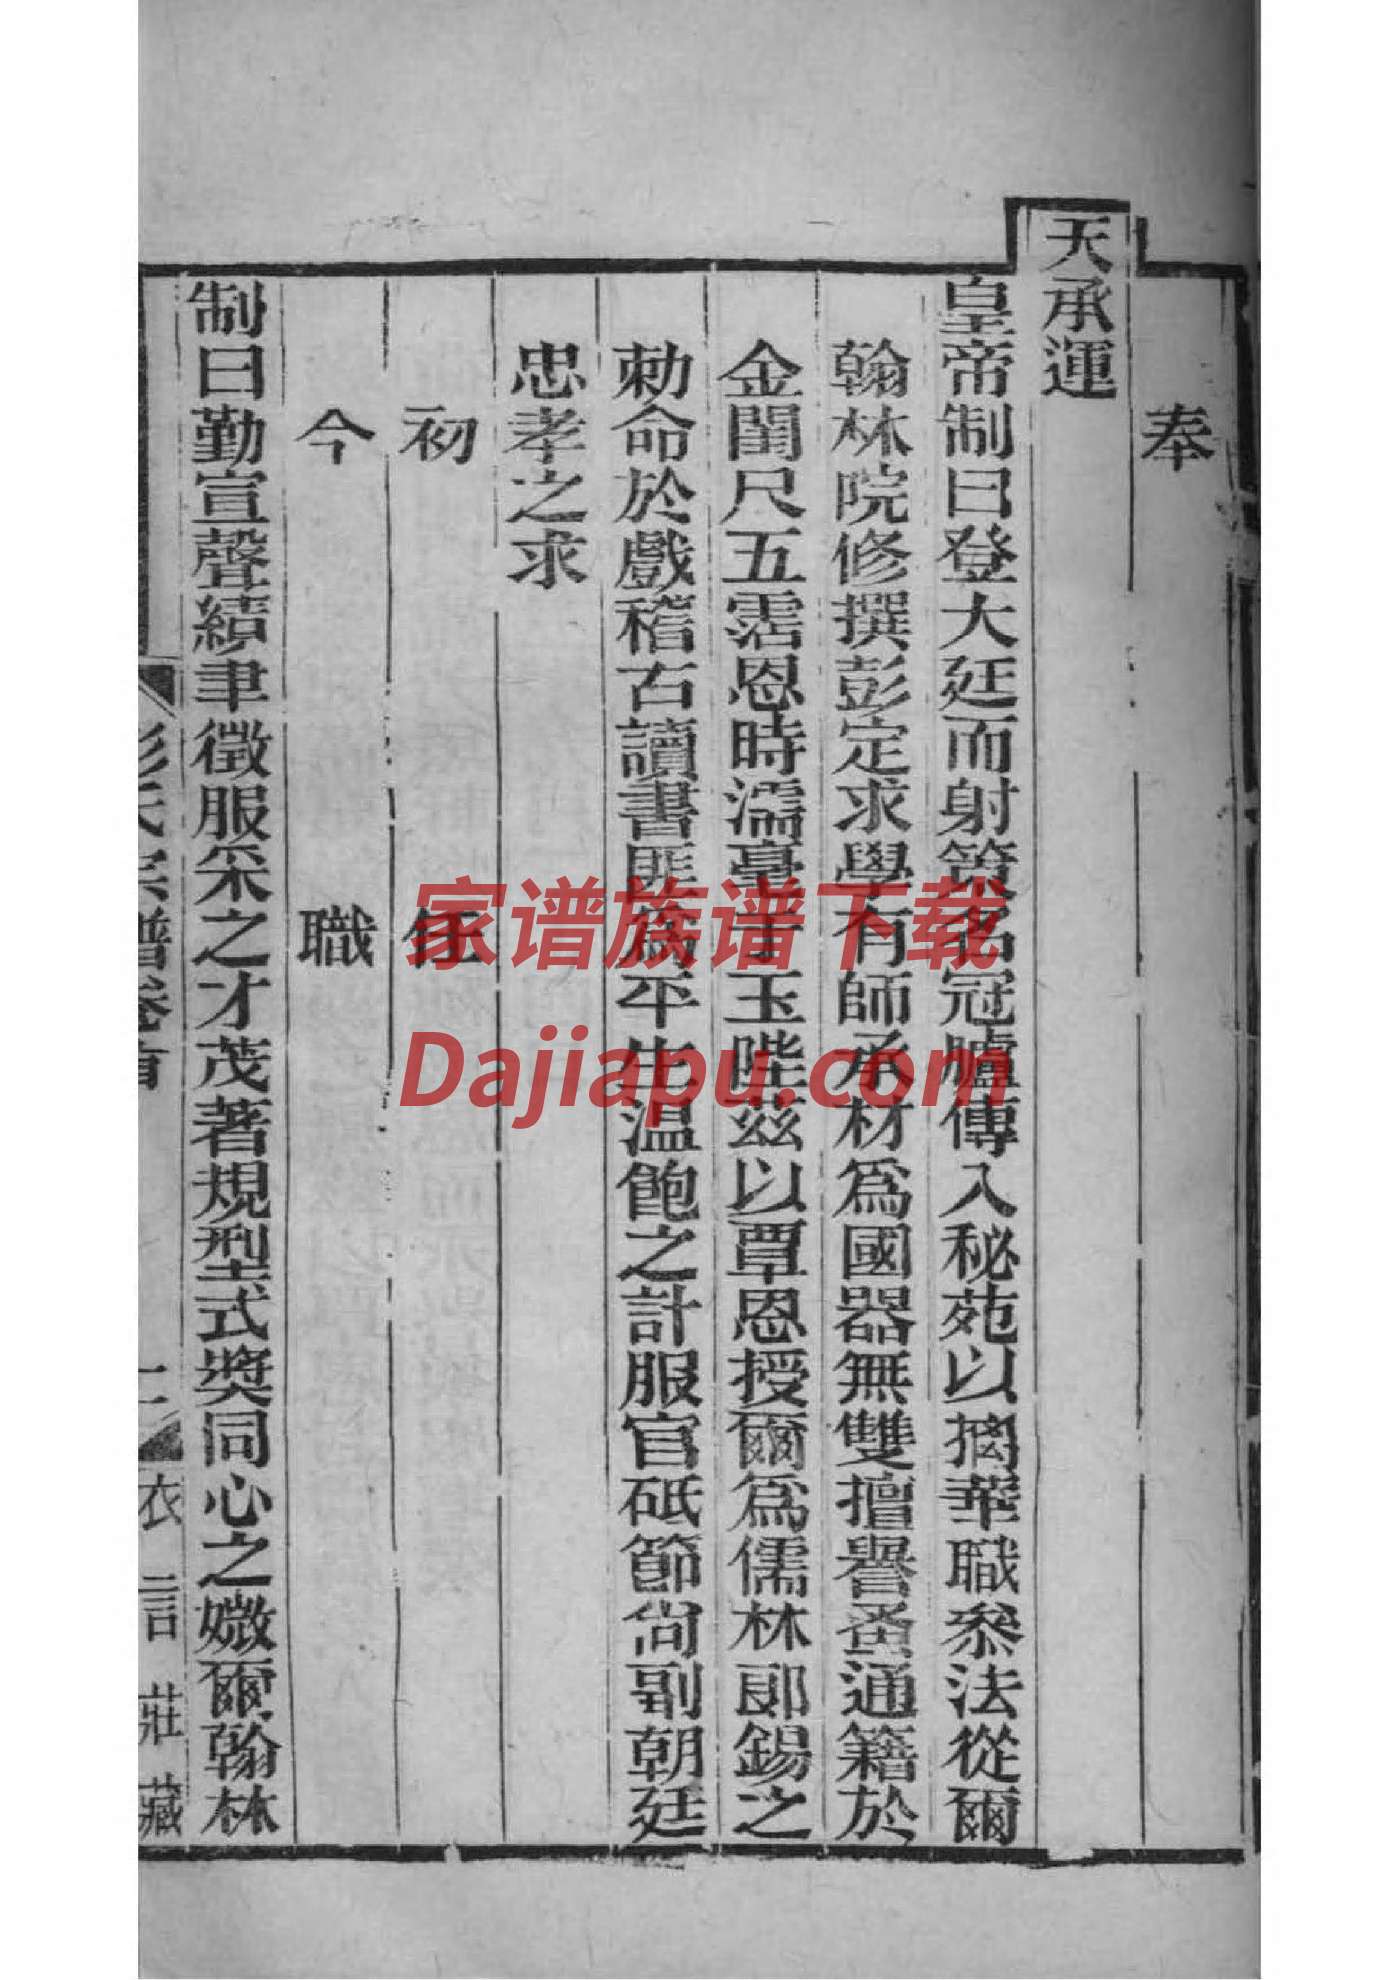 奉
天承運
皇帝制曰登大廷而射策名冠臚傳入秘苑以摛華職叅法從爾
翰林院修撰彭定求學有師承材爲國器無雙擅譽蚤通籍於
金閨尺五霑恩時濡毫于玉陛茲以覃恩授爾爲儒林郎錫之
勅命於戲稽古讀書匪爲平生温飽之計服官砥節尙副朝廷
忠孝之求
初任
今職
制曰勤宣聲績聿徵服采之才茂著規型式奬同心之媺爾翰林
彭氏宗譜卷首
二
衣言莊藏
家谱族谱下载
Dajiapu.com